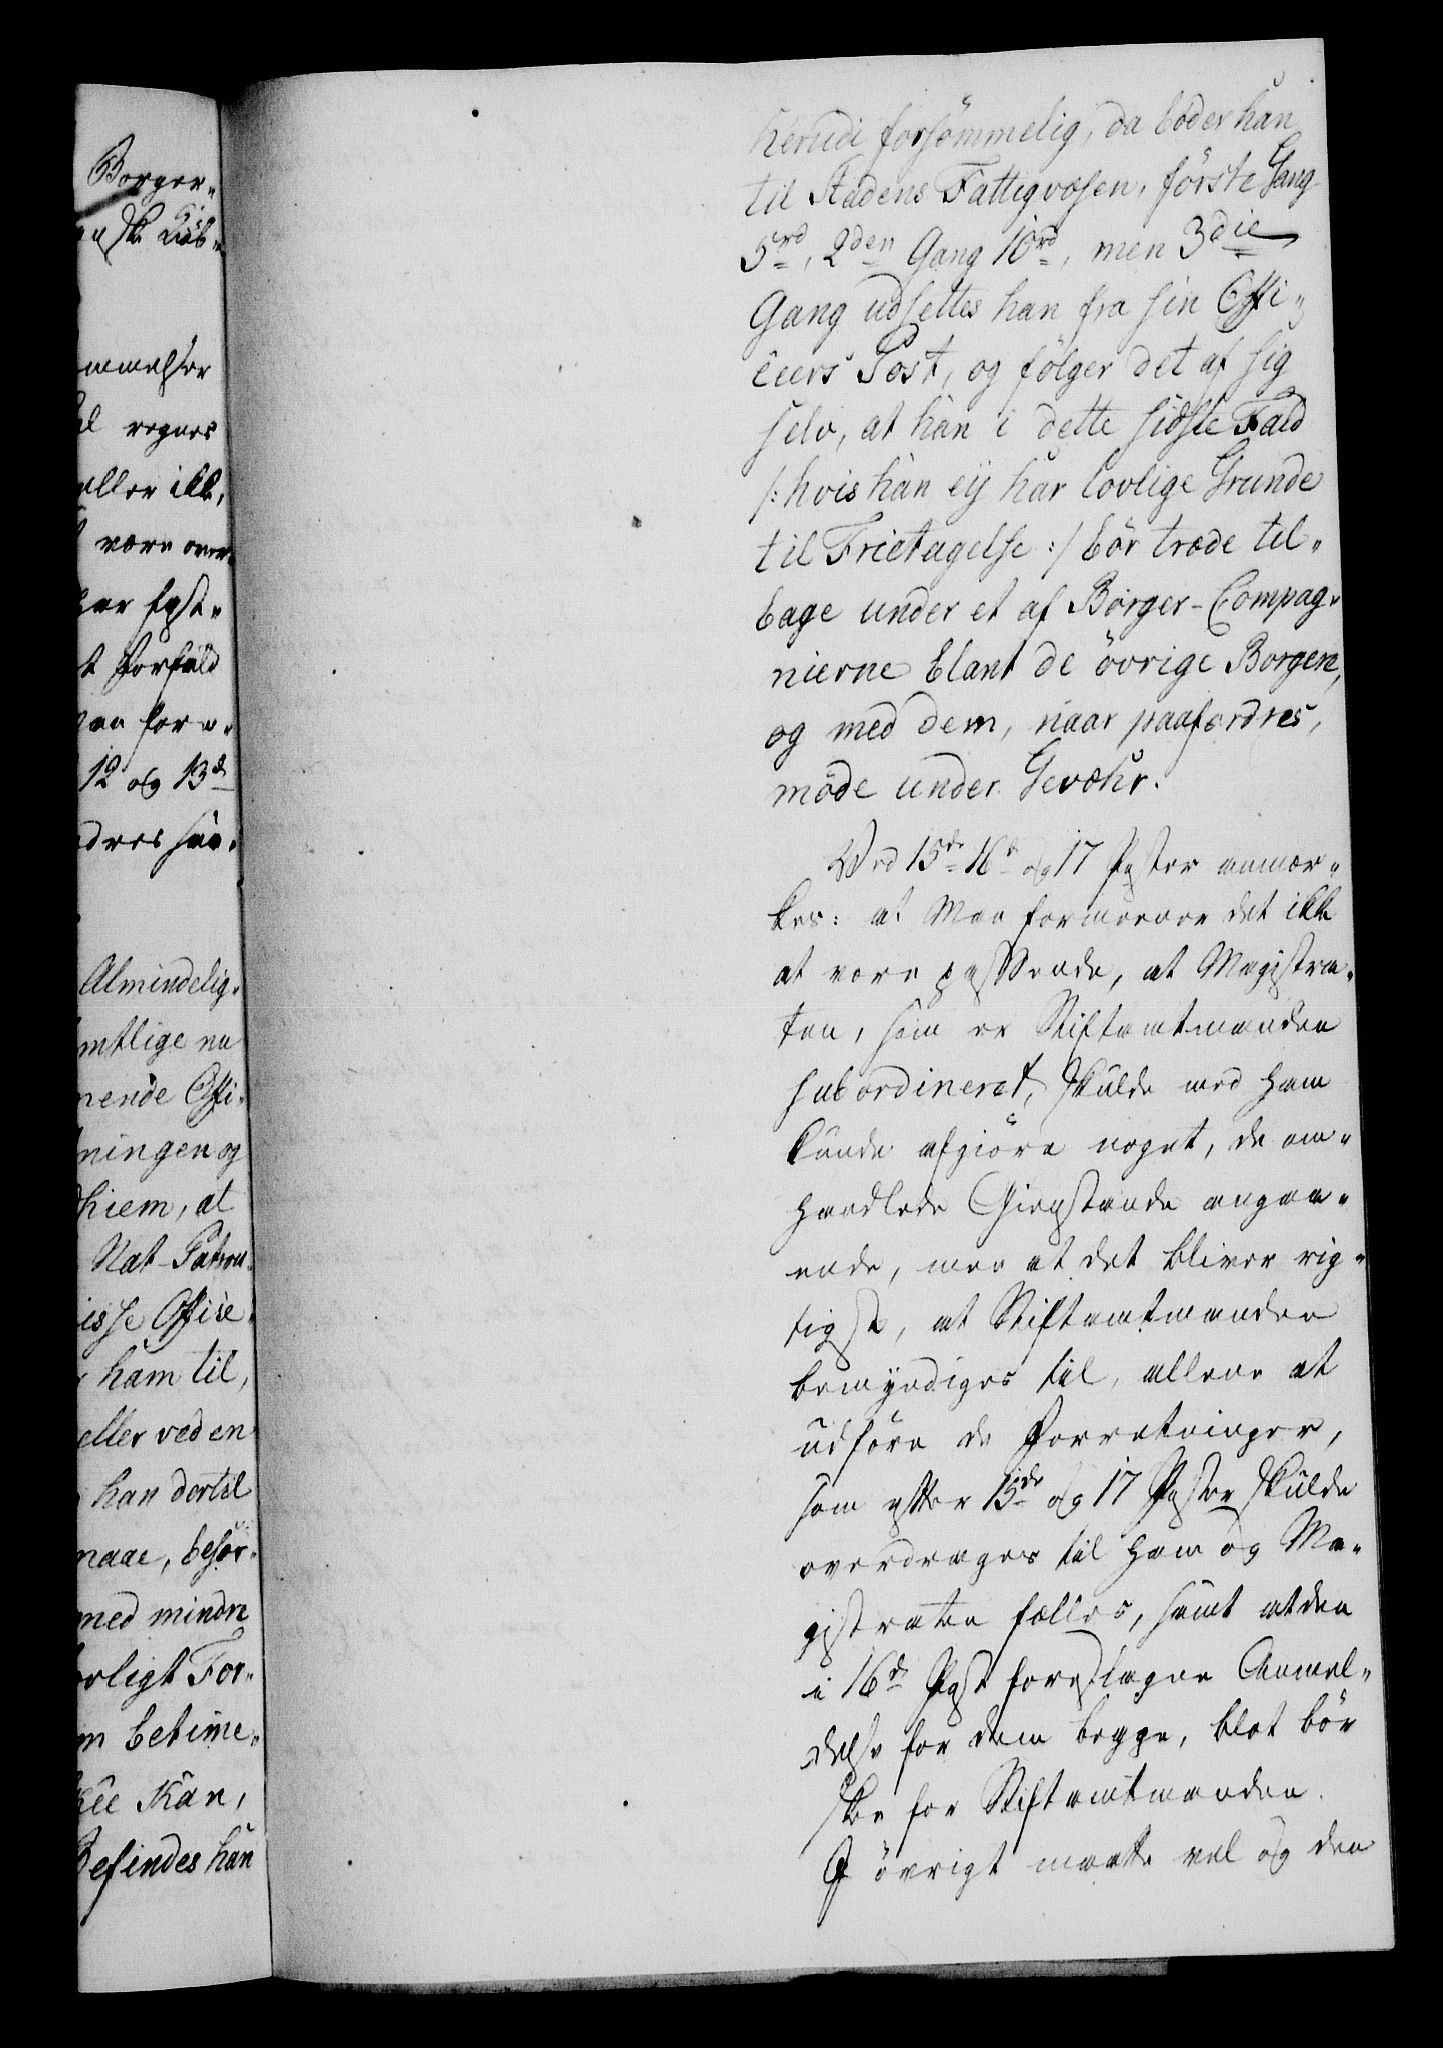 Borger-
ske Kiøb-
emmelser
regnes
eller ikke,
være over-
har fast-
t Forfald
paa fore-
12 og 13de
dres saa-
Almindelig-
mtlige nu
nende Offi-
ningen og
dhiem, at
Nat-Patrou-
isse Office-
ham til,
eller ved en
han dertil
maae, besør-
med mindre
orligt For-
m betime-
kee Kan,
Befindes han
herudi forsömmelig, da böder han
til Stadens Fattigvæsen, förste Gang
5rd, 2den Gang 10rd, men 3die
Gang udsettes han fra sin Offi-
ceers Post, og fölger det af sig
selv, at han i dette sidste Fald
/: hvis han ey har lovlige Grunde
til Frietagelse :/ bör træde til-
bage under et af Borger-Compag-
nierne blant de övrige Borgere,
og med dem, naar paafordres,
möde under Gevæhr.
Ved 15de 16de og 17 Poster anmær-
kes: at Man formeener det ikke
at være passende, at Magistra-
ten, som er Stiftamtmanden
subordineret, skulde med ham
kunde afgiöre noget, de om-
handlede Gienstande angaa-
ende, men at det bliver rig-
tigst, at Stiftamtmanden
bemyndiges til, allene at
udföre de Forretninger,
som efter 15de og 17 Poster skulde
overdrages til ham og Ma-
gistraten fælles, samt at den
i 16de Post foreslagne Anmel-
delse for dem begge, blot bör
skee for Stiftamtmanden.
I övrigt maatte vel og den